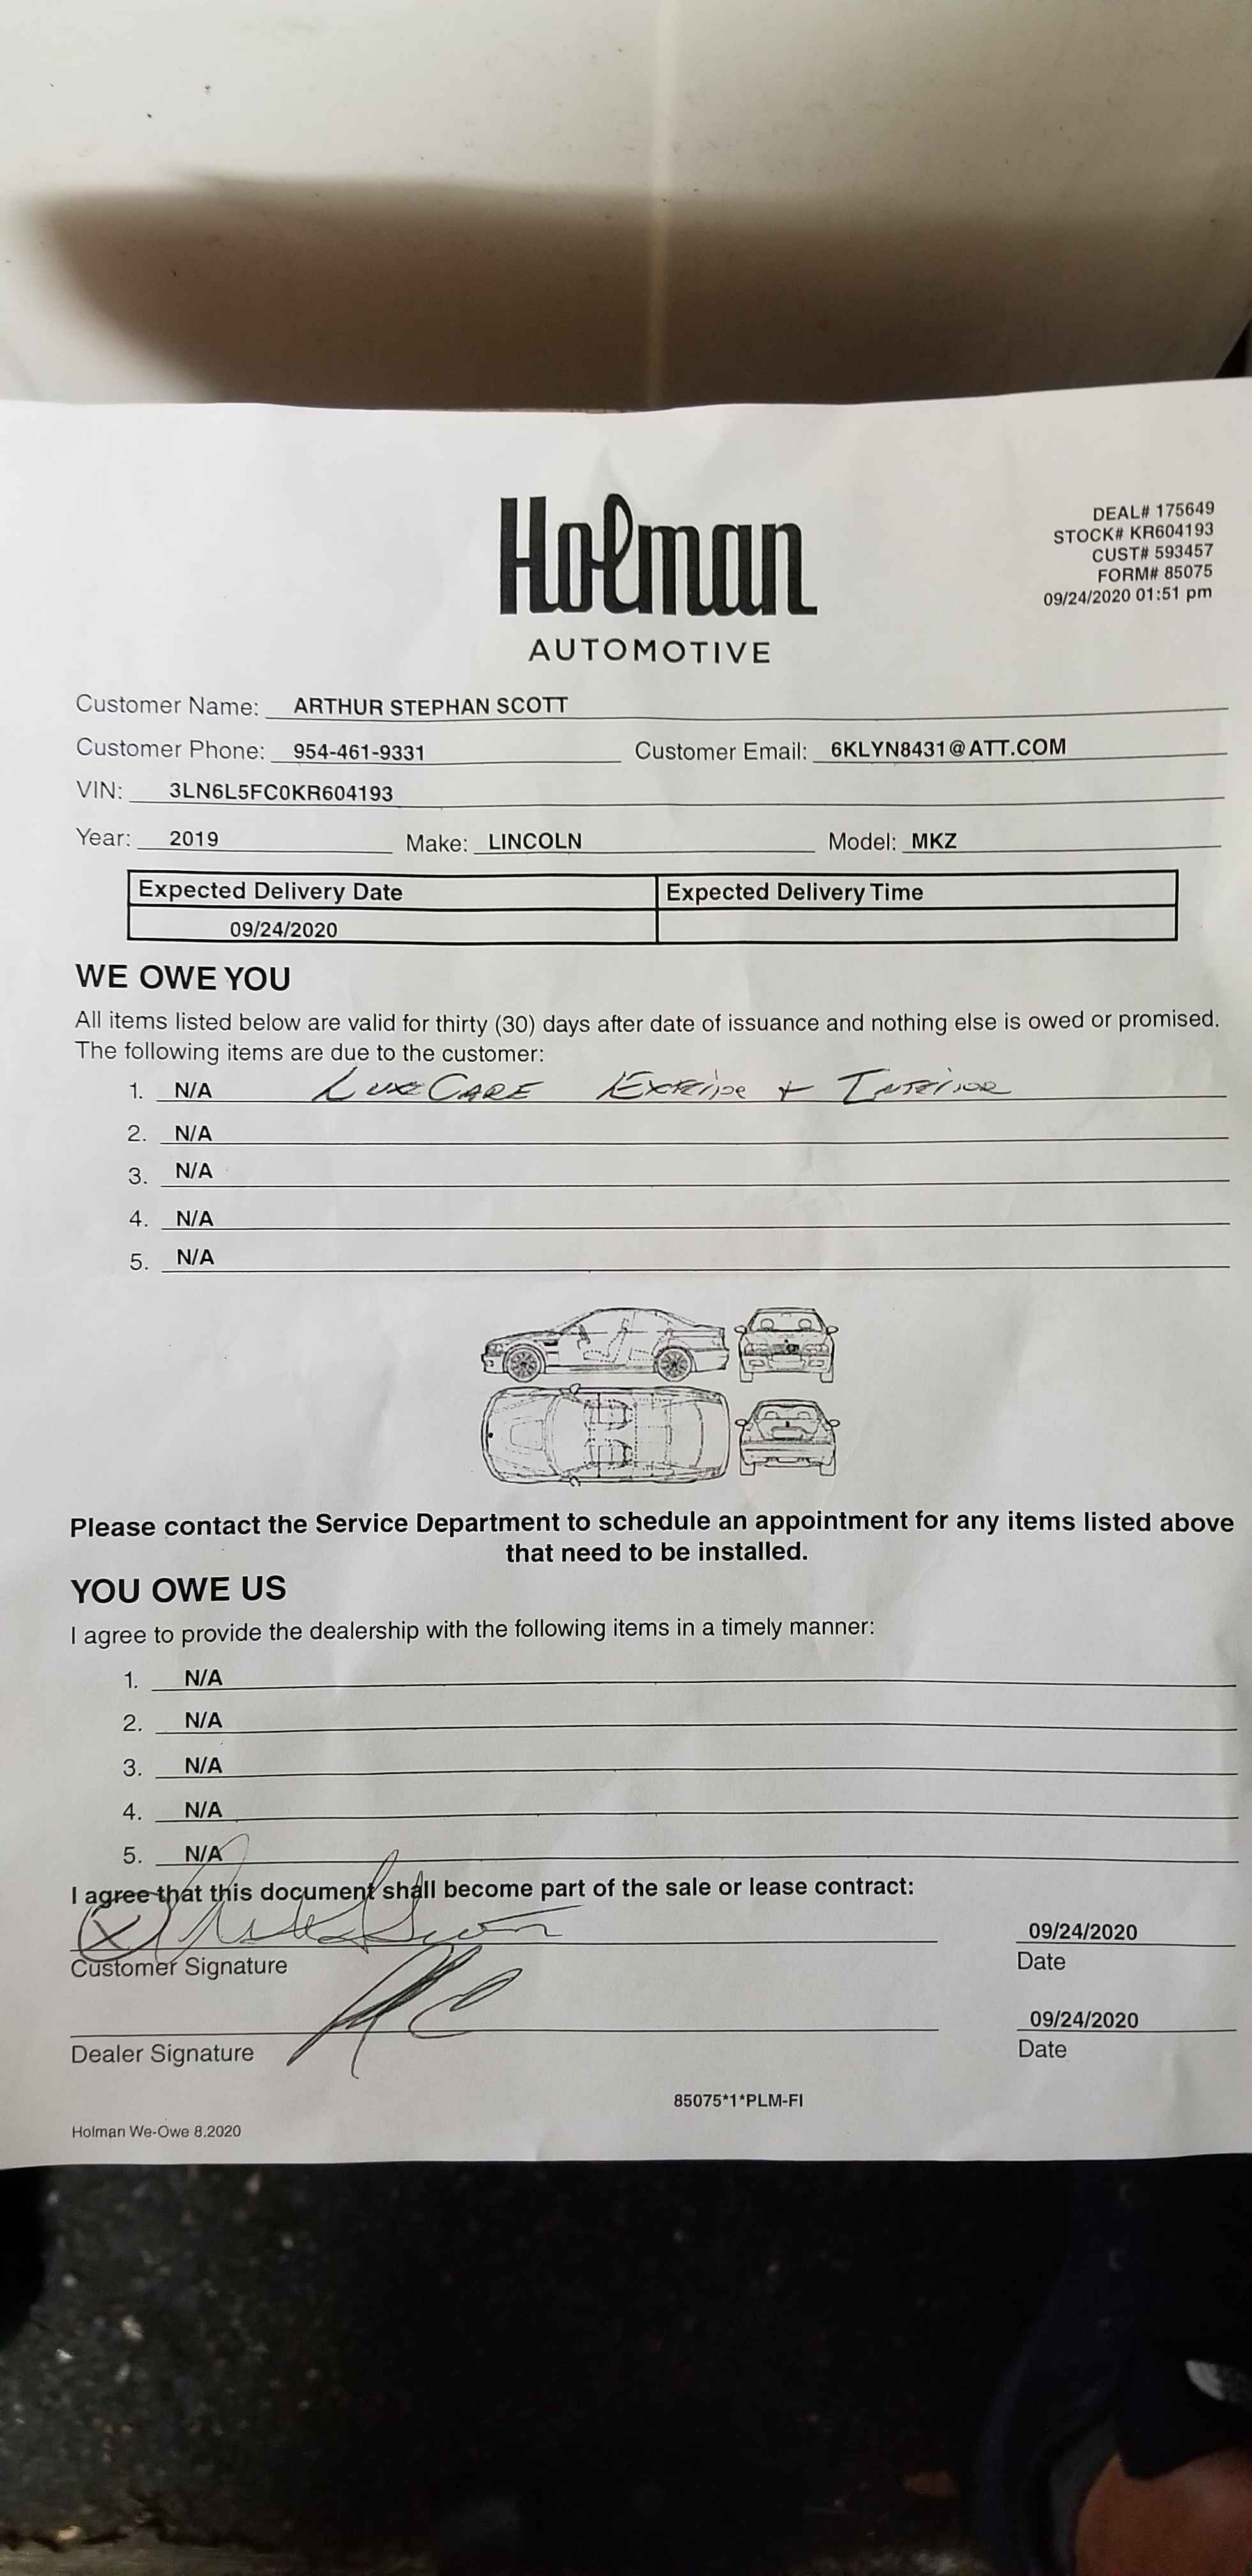 Holman
AUTOMOTIVE
DEAL# 175649
STOCK# KR604193
CUST# 593457
FORM# 85075
09/24/2020 01:51 pm
Customer Name: ARTHUR STEPHAN SCOTT
Customer Phone: 954-461-9331 Customer Email: 6KLYN8431@ATT.COM
VIN: 3LN6L5FC0KR604193
Year: 2019 Make: LINCOLN Model: MKZ
Expected Delivery Date Expected Delivery Time
09/24/2020
WE OWE YOU
All items listed below are valid for thirty (30) days after date of issuance and nothing else is owed or promised.
The following items are due to the customer:
1. N/A LUXECARE EXTERIOR + INTERIOR
2. N/A
3. N/A
4. N/A
5. N/A
Please contact the Service Department to schedule an appointment for any items listed above
that need to be installed.
YOU OWE US
I agree to provide the dealership with the following items in a timely manner:
1. N/A
2. N/A
3. N/A
4. N/A
5. N/A
I agree that this document shall become part of the sale or lease contract:
X 09/24/2020
Customer Signature Date
09/24/2020
Dealer Signature Date
85075*1*PLM-FI
Holman We-Owe 8.2020